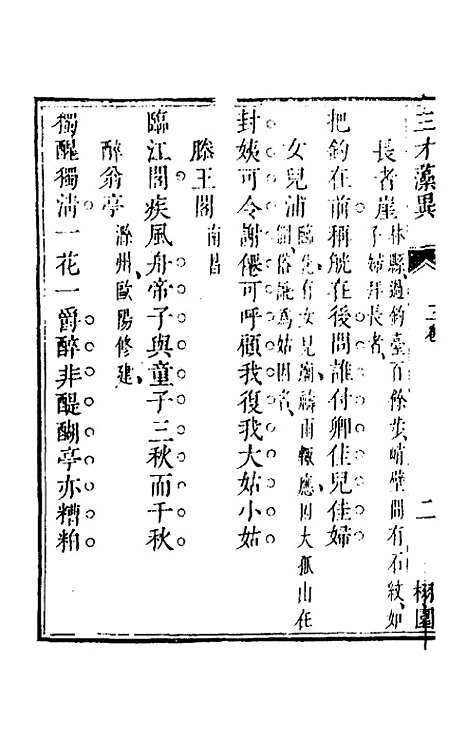 三才藻異 二卷 二 栩園
長者崖 林縣過釣臺百餘步峭壁間有石紋如
子婦拜長者
把鈎在前稱觥在後問誰付卿佳兒佳婦
女兒浦 有女兒廟禱雨輒應因大孤山在
俗訛為姑因名
封姨可令謝僊可呼顧我復我大姑小姑
滕王閣 南昌
臨江閣疾風舟帝子與童子三秋而千秋
醉翁亭 滁州歐陽修建
獨醒獨清一花一爵醉非醍醐亭亦糟粕